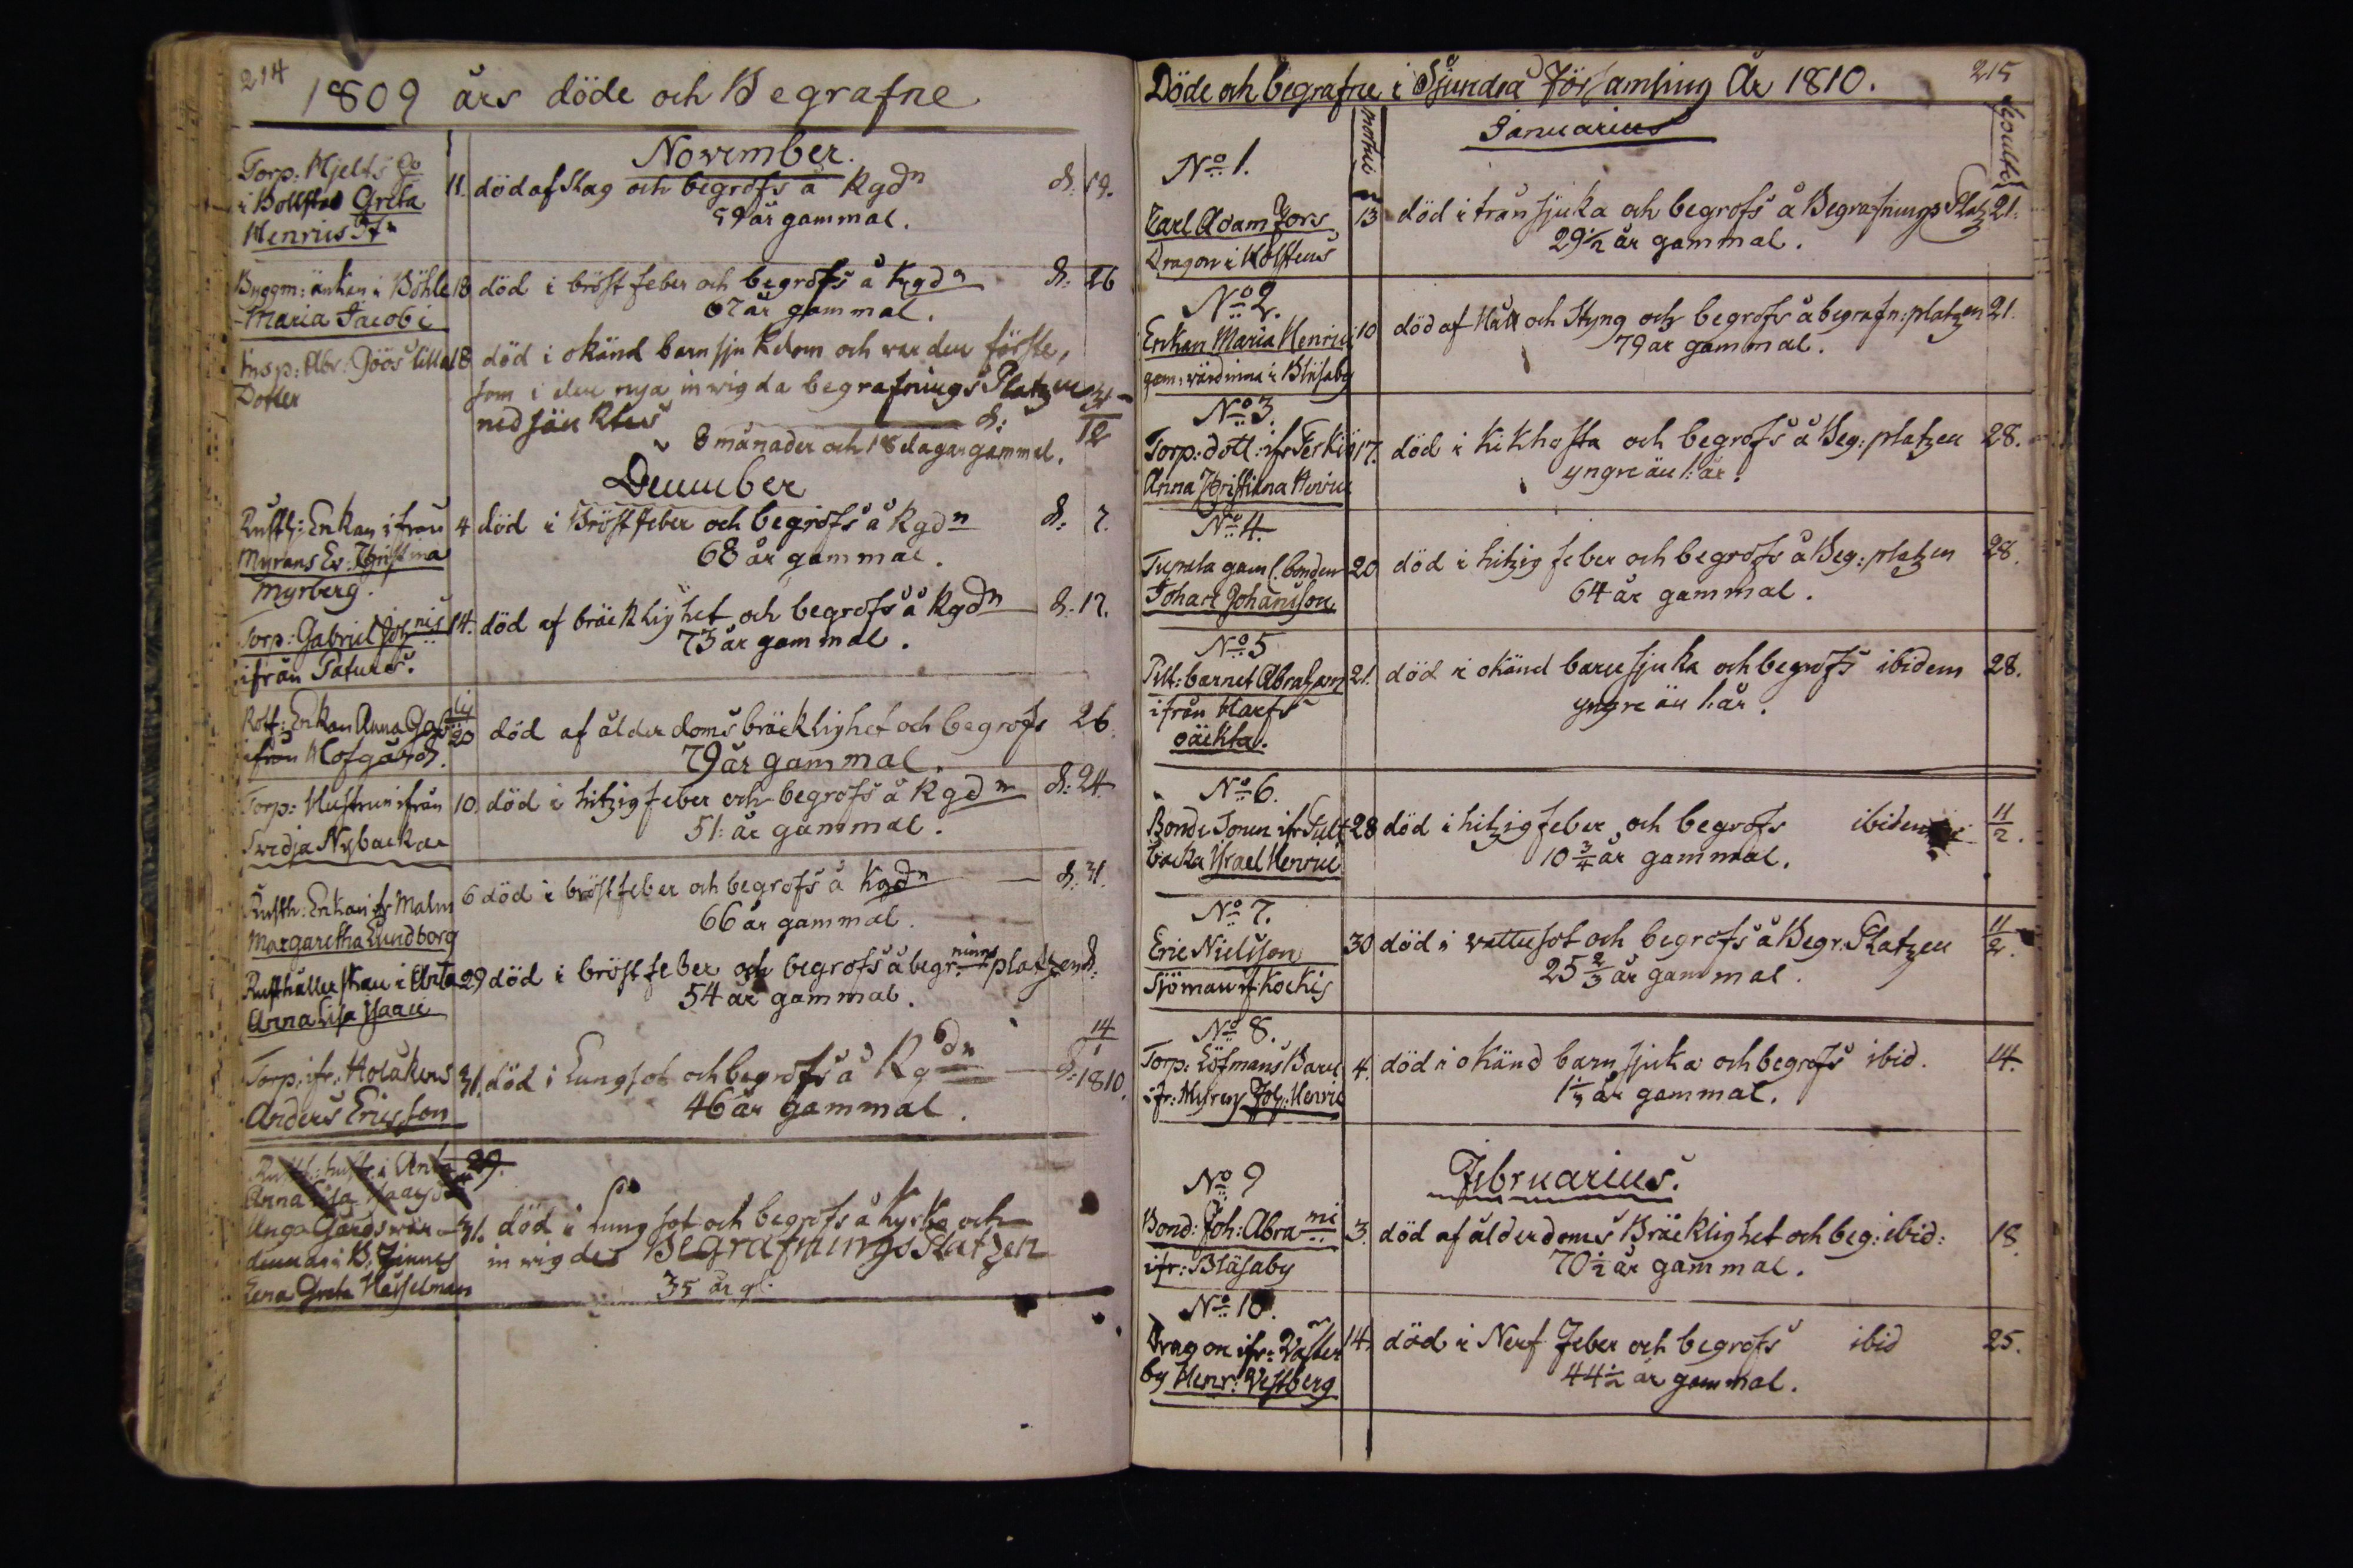 214
1809 års döde och Begrafne
November.
Torp: Hjelts
i Bollstad Greta
Henrics
11. död af slag och begrofs å Kgdn d. 19.
59 år gammal.
Byggm: änkan i Böhle
Maria Jacobi
18 död i bröst feber och begrofs å Kgdn d. 26
67 år gammal.
Insp: Abr: Göös lilla
Dotter
18 död i okänd barnsjukdom och var den förste,
som i den nya inwigda begrafnings Platzen
nedsänktes d: 12
8 månader och 18 dagar gammal.
December
Rusth: Enkan ifrån
Myrans Ev: Christina
Myrberg.
4 död i Bröst feber och begrofs å Kgdn d: 7.
68 år gammal.
Torp: Gabriel Johnis
ifrån Paturs.
14. död af bräcklighet och begrofs å Kgdn d: 17.
73 år gammal.
Rotf: Enkan Anna
ifrån Hofgård.
20 död af ålderdoms bräcklighet och begrofs 26.
79 år gammal.
Torp: Hustrun ifrån
Svidja Nybackar
10. död i hitzig feber och begrofs å Kgdn d: 24.
51: år gammal.
Rusth: Enkan ifr Malm
Margaretha Lundborg
6 död i bröstfeber och begrofs å Kgdn d. 31.
66 år gammal.
Rusthållerskan i
Anna Lisa Isaaci
29 död i bröst feber och begrofs å begr:nings platzen d:
54 år gammal.
Torp: ifr: Holåkers
Anders Ericsson
31. död i Lungsot och begrofs å Kgdn d: 14/1 1810.
46 år gammal.
Rusth: hust: i
Anna Lisa
29.
Unga Gårdswär-
dinnan i B: Finnes
Lena Greta Hesselman
31. död i Lungsot och begrofs å kyrko och
inwigder BegrafningsPlatzen
35 år gl.
215
Döde och begrafne i Sjundeå Församling År 1810.
Mortui
Sepulti
Januarius
No 1.
Carl Adam Fors
Dragon i Kolsteus
13 död i trånsjuka och begrofs å Begrafnings Platz 21.
29 1/2 år gammal.
No 2.
Enkan Maria Henrici
gam: värdinna i Bläsaby
10 död af Håll och Styng och begrofs å begrafn: platzen 21.
79 år gammal.
No 3.
Torp: dott: ifr
Anna Christina Henrici
17. död i Kikhosta och begrofs å Beg: platzen 28.
yngre än 1: år.
No 4.
Tupala gaml. bonden
Johan Johansson
20 död i hitzig feber och begrofs å Beg: platzen 28.
64 år gammal.
No 5
Pilt: barnet Abraham
ifrån
oäckta.
21. död i okänd barnsjuka och begrofs ibidem 28.
yngre än 1: år.
No 6.
Bonde Sonen ifr
backa Israel Henrici
28 död i hitzig feber och begrofs ibidem 11/2.
10 3/4 år gammal.
No 7.
Eric Nielsson
Sjöman if: Kockis
30 död i vattusot och begrofs å Begr. Platzen 11/2.
25 2/3 år gammal.
No 8.
Torp: Löfmans Barn
ifr: Myrans Joh: Henric
4. död i okänd barn sjuka och begrofs ibid. 14.
år gammal.
Februarius.
No 9
Bond: Joh: Abrami
ifr: Bläsaby
3. död af ålderdoms Bräcklighet och beg: ibid: 18.
70 1/2 år gammal.
No 10.
Dragon ifr:
by Henr: Vestberg
14. död i Nerf Feber och begrofs ibid 25.
44 1/2 år gammal.